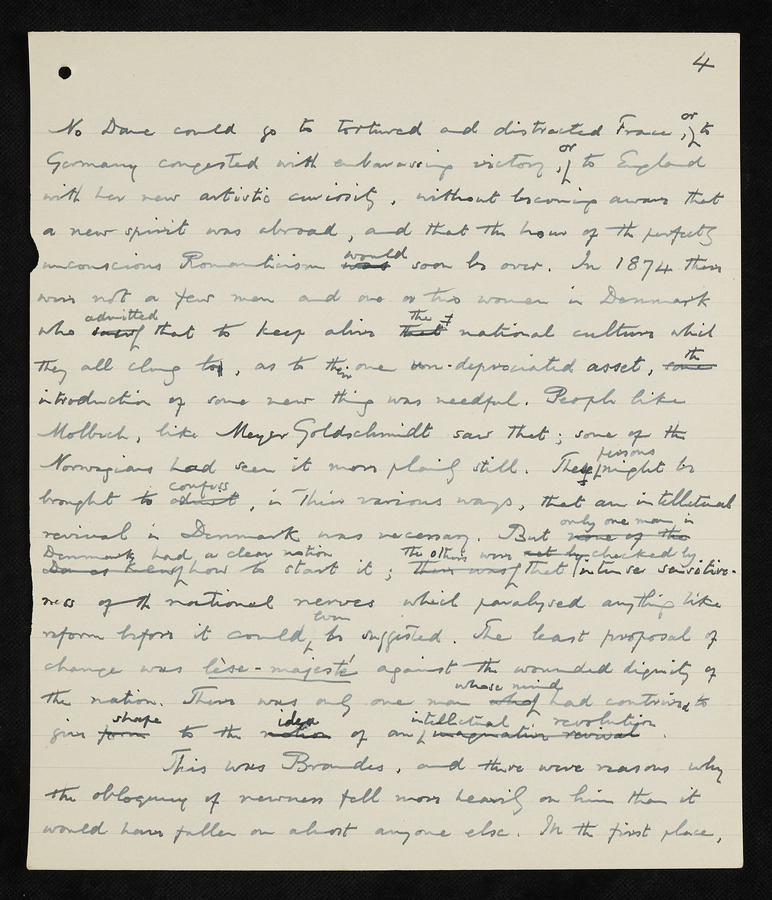 4
No Dane could go to tortured and distracted France, or to
Germany congested with embarrassing victory, or to England
with her new artistic curiosity, without becoming aware that
a new spirit was abroad, and that the hour of the perfectly
unconscious Romanticism would soon be over. In 1874 there
were not a few men and one or two women in Denmark
who admitted that to keep alive the national culture which
they all clung to, as to their one un-depreciated asset, the
introduction of some new thing was needful. People like
Molbech, like Meyer Goldschmidt saw that; some of the
Norwegians had seen it more plainly still. These persons might be
brought to confess, in their various ways, that an intellectual
revival in Denmark was necessary. But only one man in
Denmark had a clear notion how to start it; the others were checked by that intense sensitive-
ness of the national nerves which paralysed anything like
reform before it could even be suggested. The least proposal of
change was lèse-majesté against the wounded dignity of
the nation. There was only one man whose mind had contrived to
give shape to the idea of an intellectual revolution.
This was Brandes, and there were reasons why
the obloquy of newness fell more heavily on him than it
would have fallen on almost anyone else. In the first place,